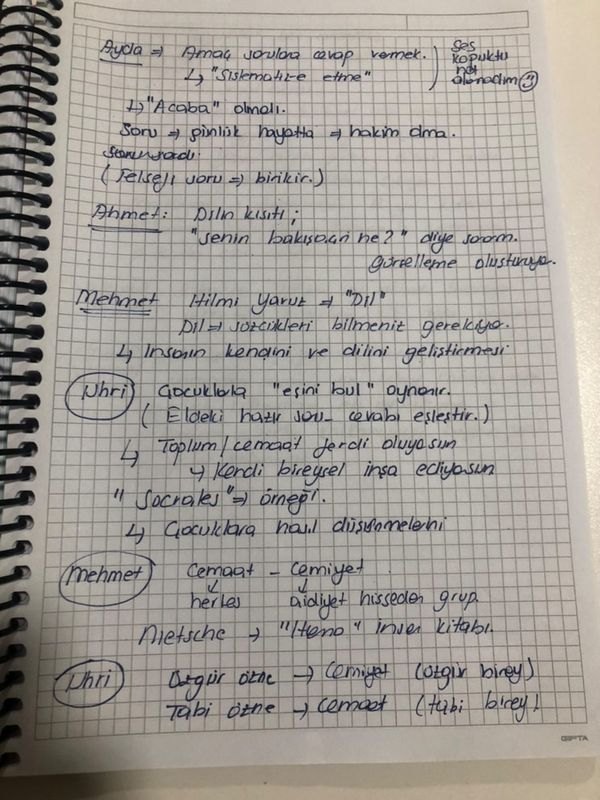 Ayda ⇒ Amaç sorulara cevap vermek.
↳ "Sistematize etme"
Ses
koptuktu
not
alamadım
↳ "Acaba" olmalı.
Soru ⇒ günlük hayatta ⇒ hakim olma.
(Felsefi soru ⇒ birikir.)
Ahmet: Dilin kısıtı;
"senin bakış açın ne?" diye sorarım.
görselleme oluşturuyo.
Mehmet Hilmi Yavuz ⇒ "Dil"
Dil ⇒ sözcükleri bilmeniz gerekiyo.
↳ İnsanın kendini ve dilini geliştirmesi
Nhri Çocuklarla "eşini bul" oynanır.
(Eldeki hazır soru - cevabı eşleştir.)
↳ Toplum/cemaat ferdi oluyosun
↳ Kendi bireysel inşa ediyosun
"Socrates" ⇒ örneği.
↳ Çocuklara nasıl düşünmelerini
Mehmet Cemaat - Cemiyet
↓ ↓
herkes aidiyet hisseden grup
Nietsche → insan kitabı.
Nhri Özgür özne → Cemiyet (özgür birey)
Tabi özne → Cemaat (tabi birey)
GIPTA